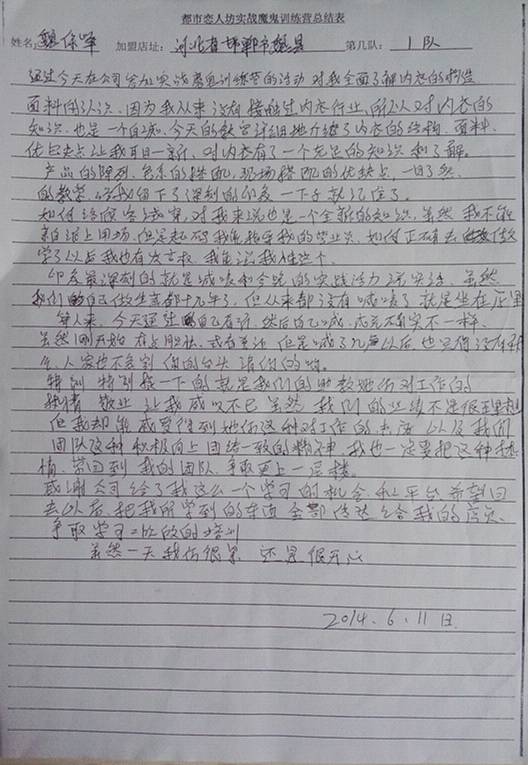 都市恋人坊实战魔鬼训练营总结表
姓名:魏保 加盟店址:河北省邯郸市魏县 第几队:1队
通过今天在公司参加实战魔鬼训练营的活动 对我全面了解内衣的构造
面料的认识、因为我从来没有接触过内衣行业,所以对内衣的
知识、也是一个白知、今天的教官详细地介绍了内衣的结构、面料、
优与缺点让我耳目一新、对内衣有了一个充足的知识和了解。
产品的陈列、色系的搭配,现场搭配的优缺点,一目了然、
的教学、给我留下了深刻的印象 一下子就记住了。
如何给顾客试穿,对我来说也是一个全新的知识、虽然我不能
亲自上用场、但是起码我能指导我的营业员、如何正确去
学了以后我也有发言权、我能说我懂这个、
印象最深刻的就是喊嗓和今晚的实践活动 演实话 虽然
我们自己做生意都十几年了,但从来都没有喊嗓了 就是坐在店里
等人来、今天通过自己 然后自己喊、成完不一样、
虽然刚开始 但是喊了几声以后 也
人家也不会到你的台头 请你的啦。
特别 特别 一下的就是我们的助教她们对工作的
热情 敬业 让我感叹不已 虽然 我们的业绩不是很理想
但我却能感受得到她们这种对工作的 以及我们
团队这种积极向上团结一致的精神、我也一定要把这种热
情、带回到我的团队、争取更上一层楼。
感谢公司给了我这么一个学习的机会和平台 希望回
去以后、把我所学到的东西 全部传达给我的店员、
争取学习二次的培训
虽然一天我们很累 还是很开心
2014.6.11日